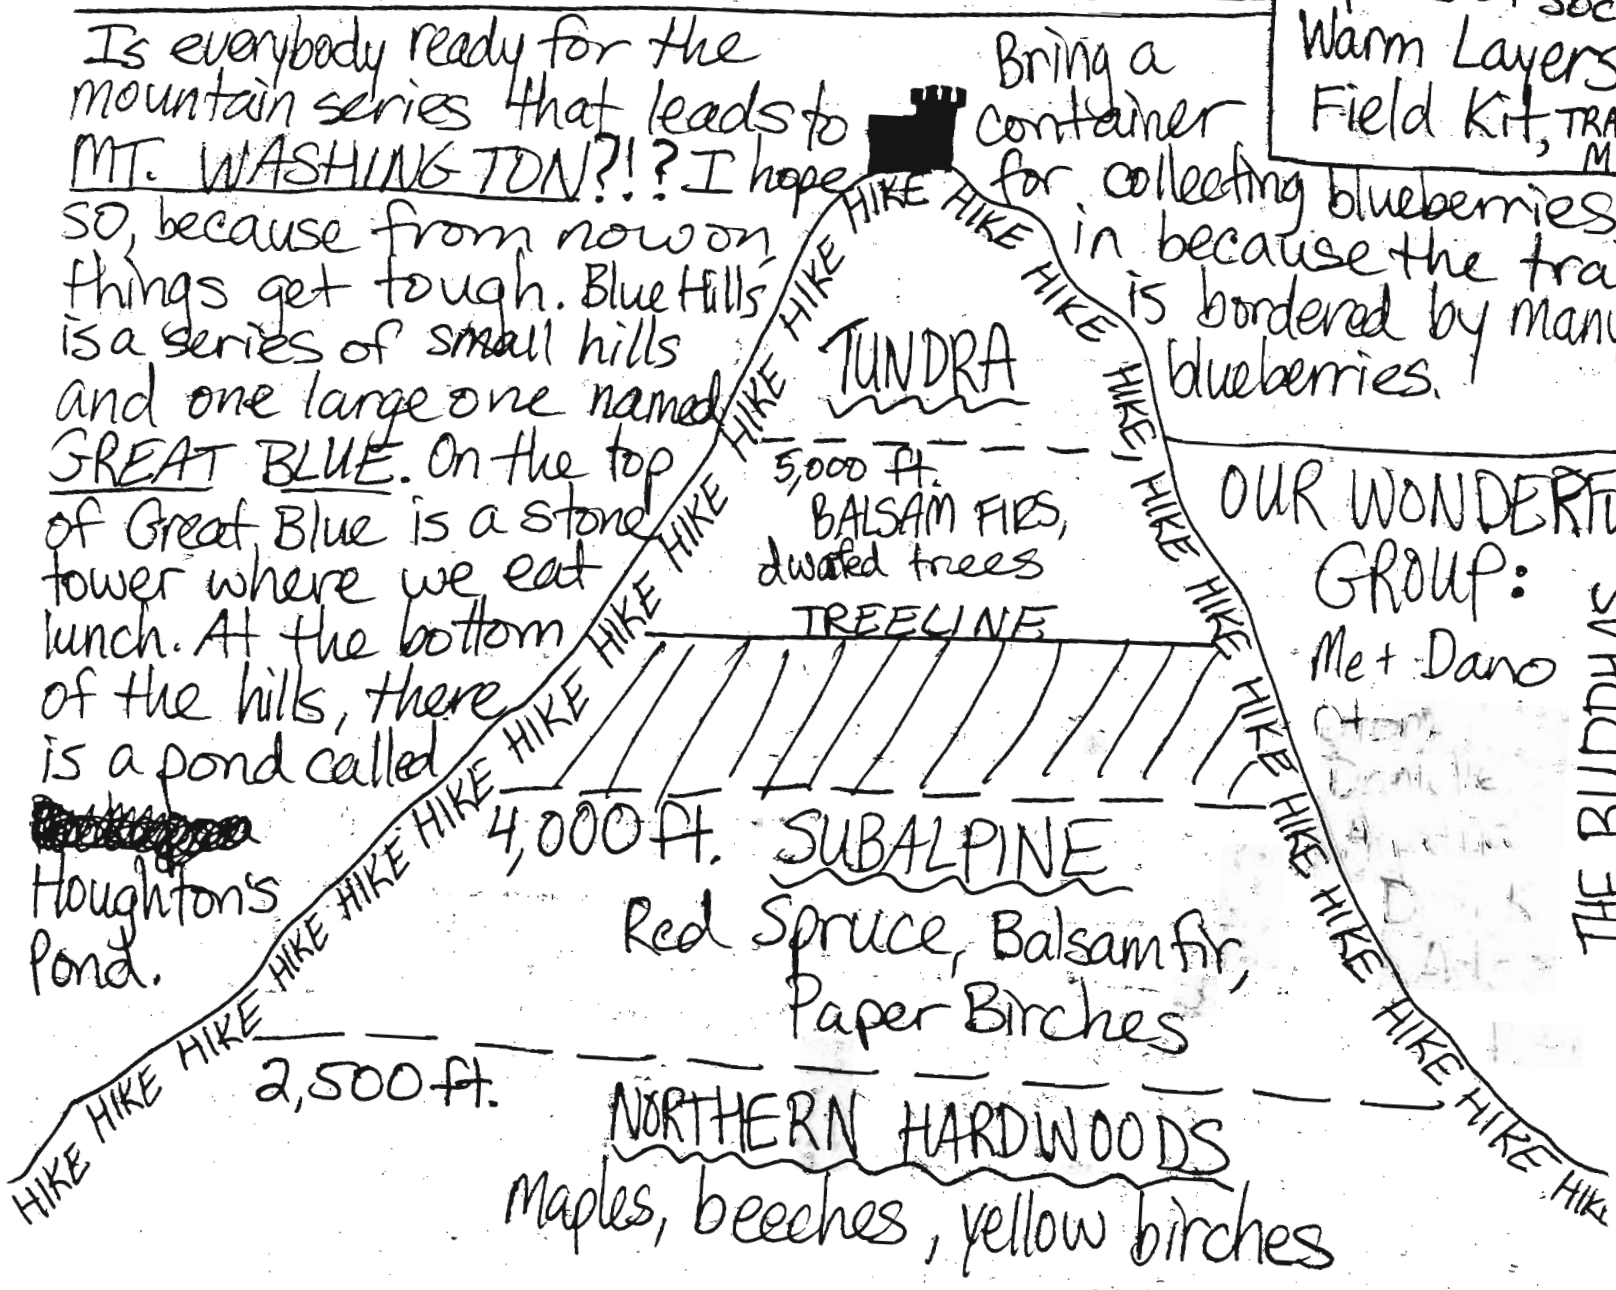 Is everybody ready for the
mountain series that leads to
MT. WASHINGTON?!? I hope
so, because from now on,
things get tough. Blue Hills
is a series of small hills
and one large one named
GREAT BLUE. On the top
of Great Blue is a stone
tower where we eat
lunch. At the bottom
of the hills, there
is a pond called
Houghton's
Pond.
Bring a
container
for collecting blueberries
in because the
is bordered by
blueberries.
Warm Layers
Field Kit,
HIKE HIKE HIKE HIKE HIKE HIKE HIKE HIKE HIKE HIKE HIKE HIKE HIKE
HIKE HIKE HIKE, HIKE HIKE HIKE HIKE HIKE HIKE HIKE
TUNDRA
5,000 ft.
BALSAM FIRS,
dwarfed trees
TREELINE
4,000 ft. SUBALPINE
Red Spruce, Balsam fir,
Paper Birches
2,500 ft.
NORTHERN HARDWOODS
Maples, beeches, yellow birches
OUR
GROUP:
Me + Dano
THE BUDDHAS